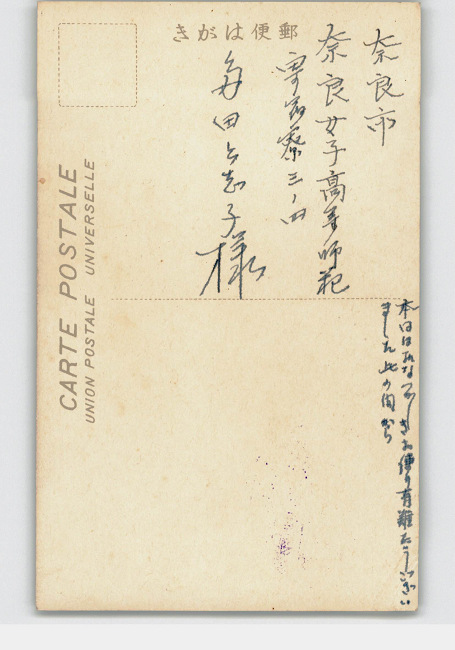 郵便はがき
奈良市
奈良女子高等師範
寄宿寮三ノ四
田志子様
本日はおなつかしきお便り有難たうございました此の間から
CARTE POSTALE
UNION POSTALE UNIVERSELLE